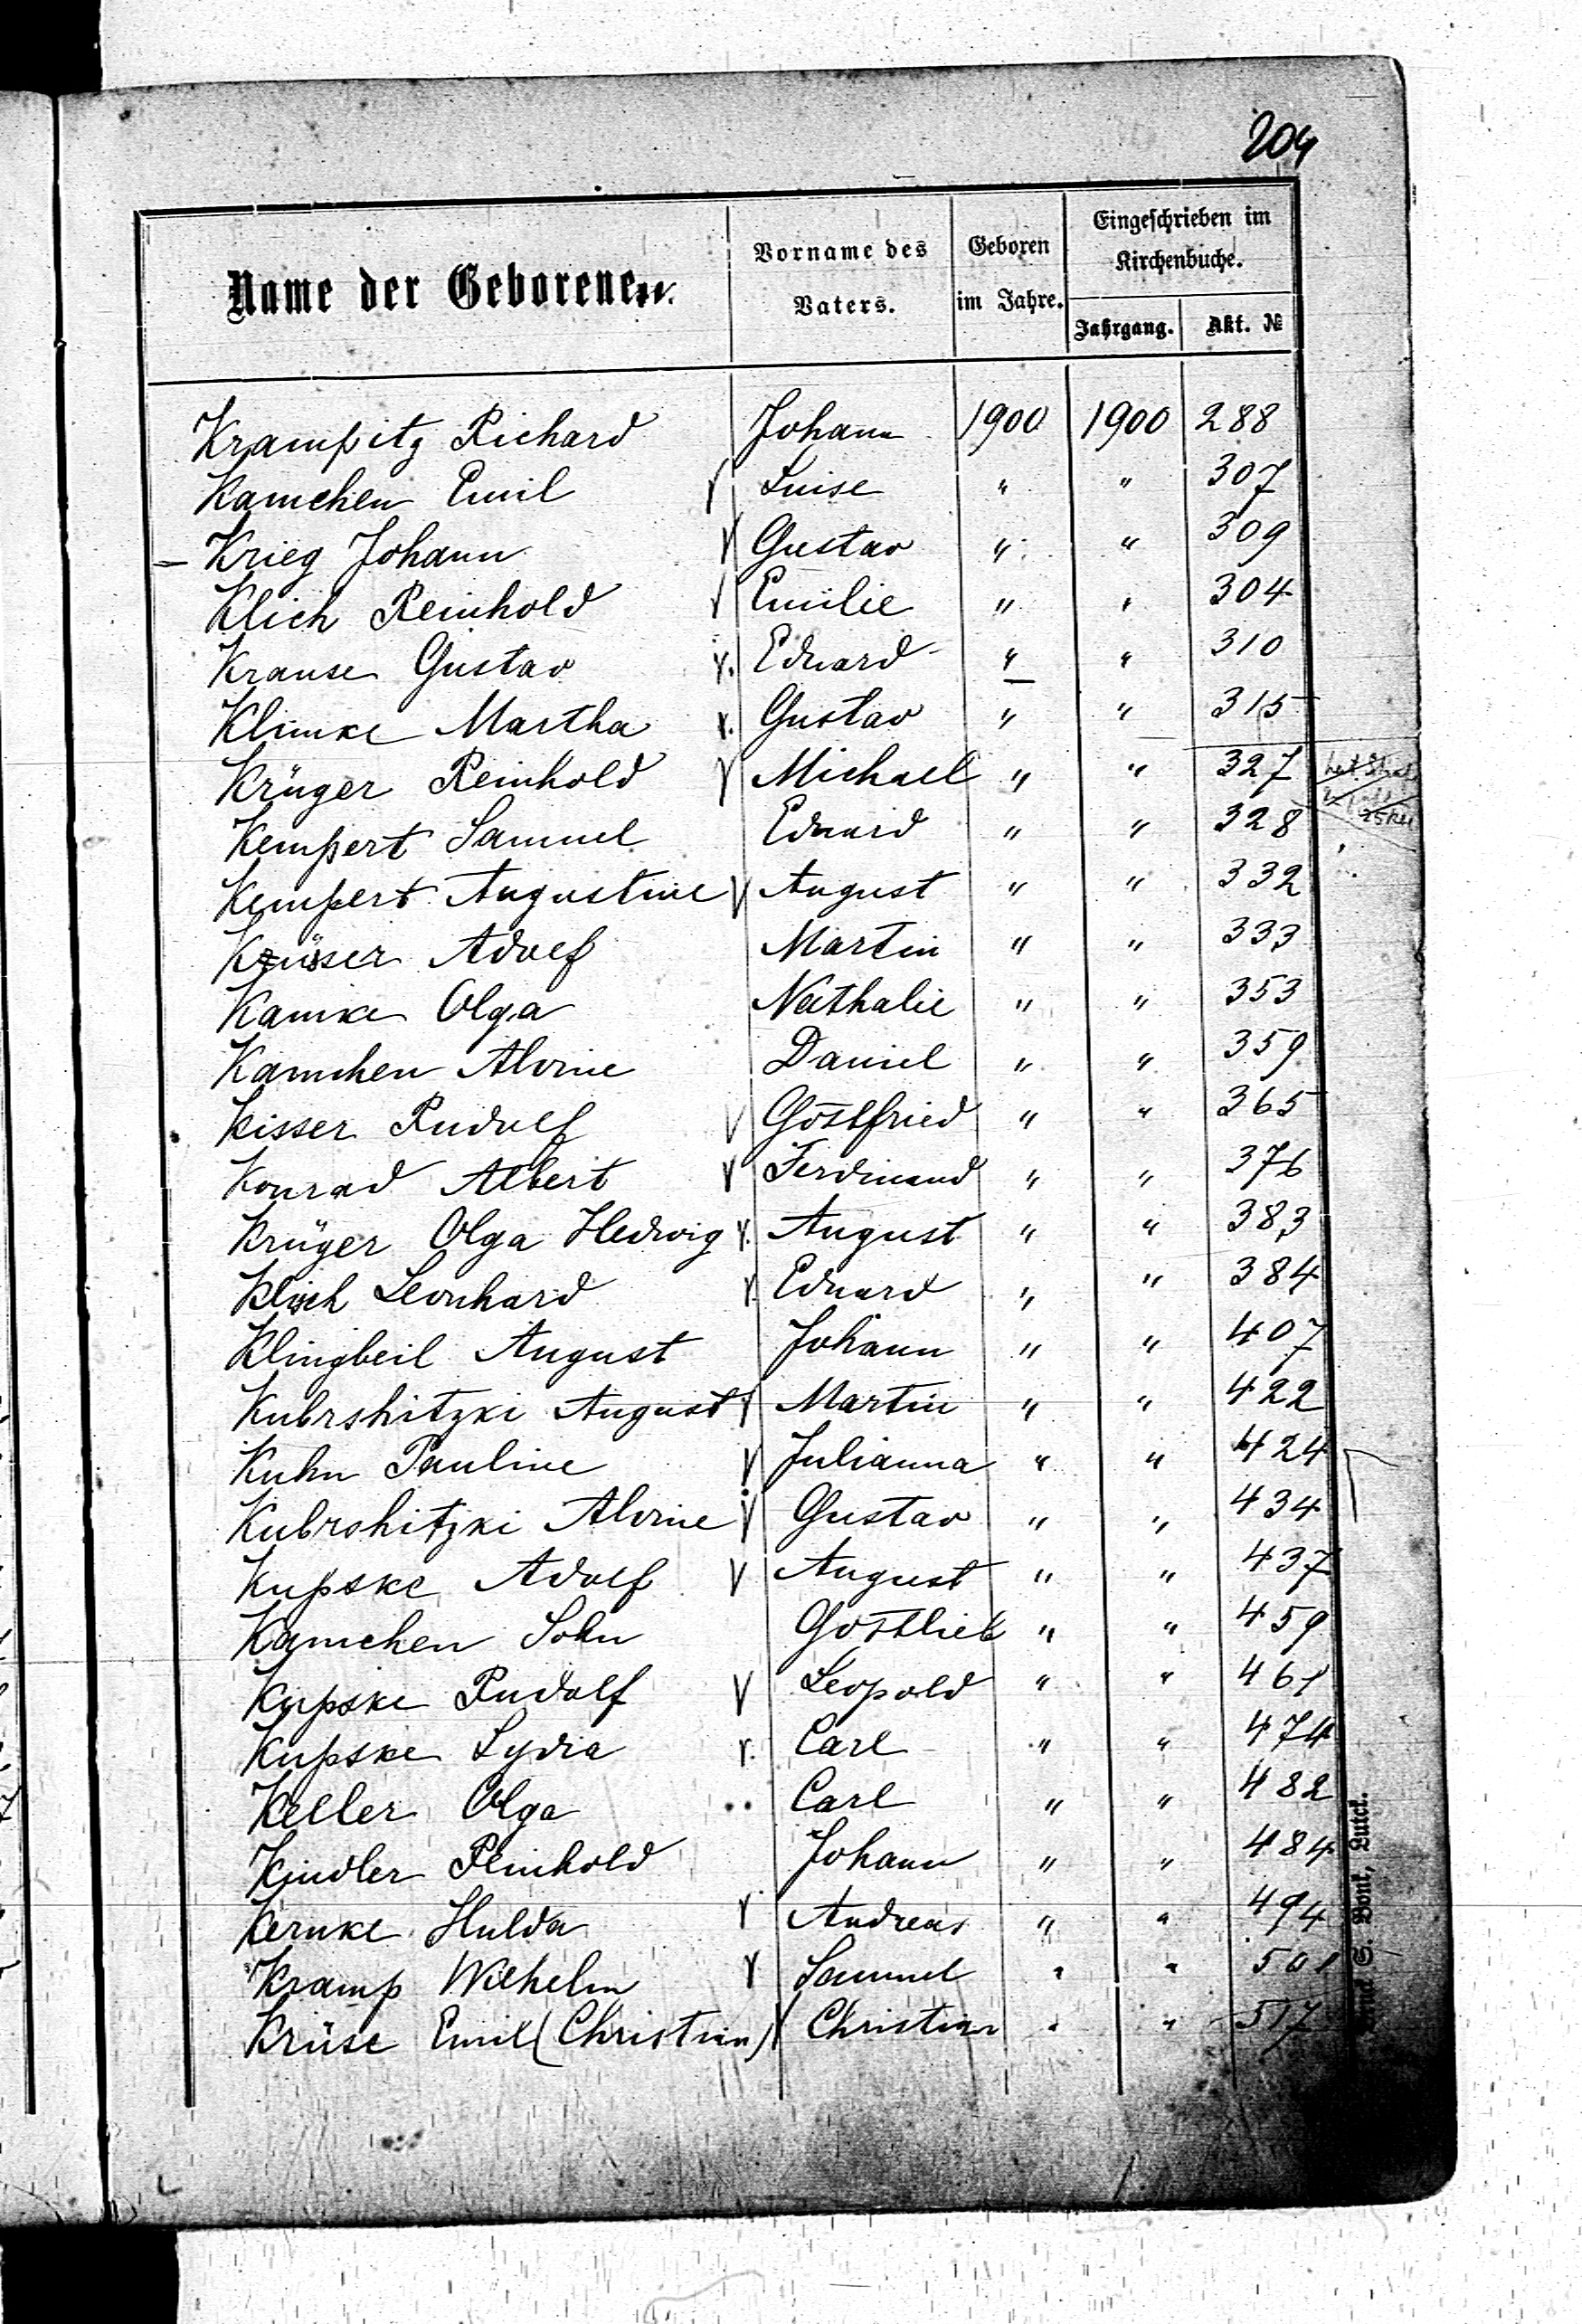 204
Name der Geborenen. Vorname des Vaters. Geboren im Jahre. Eingeschrieben im Kirchenbuche.
Jahrgang. Akt. №
Krampitz Richard Johann 1900 1900 288
Kamchen Emil Luise " " 307
Krieg Johann Gustav " " 309
Klich Reinhold Emilie " " 304
Krause Gustav Eduard " " 310
Klimke Martha Gustav " " 315
Krüger Reinhold Michael " " 327
Kempert Samuel Eduard " " 328
Kempert Augustine August " " 332
Adolf Martin " " 333
Kamke Olga Nathalie " " 353
Kamchen Alvine Daniel " " 359
Kisser Rudolf Gottfried " " 365
Konrad Albert Ferdinand " " 376
Krüger Olga Hedwig August " " 383
Klich Leonhard Eduard " " 384
Klingbeil August Johann " " 407
Kubrshitzki August Martin " " 422
Kuhn Pauline Julianna " " 424
Kubrshitzki Alvine Gustav " " 434
Kupske Adolf August " " 437
Kamchen Sohn Gottlieb " " 459
Kupske Rudolf Leopold " " 461
Kupske Lydia Carl " " 474
Keller Olga Carl " " 482
Kindler Reinhold Johann " " 484
Kernke Hulda Andreas " " 494
Kramp Wilhelm Samuel " " 501
Krüse Emil (Christian) Christian " " 517
S. Bonk, Lutck.